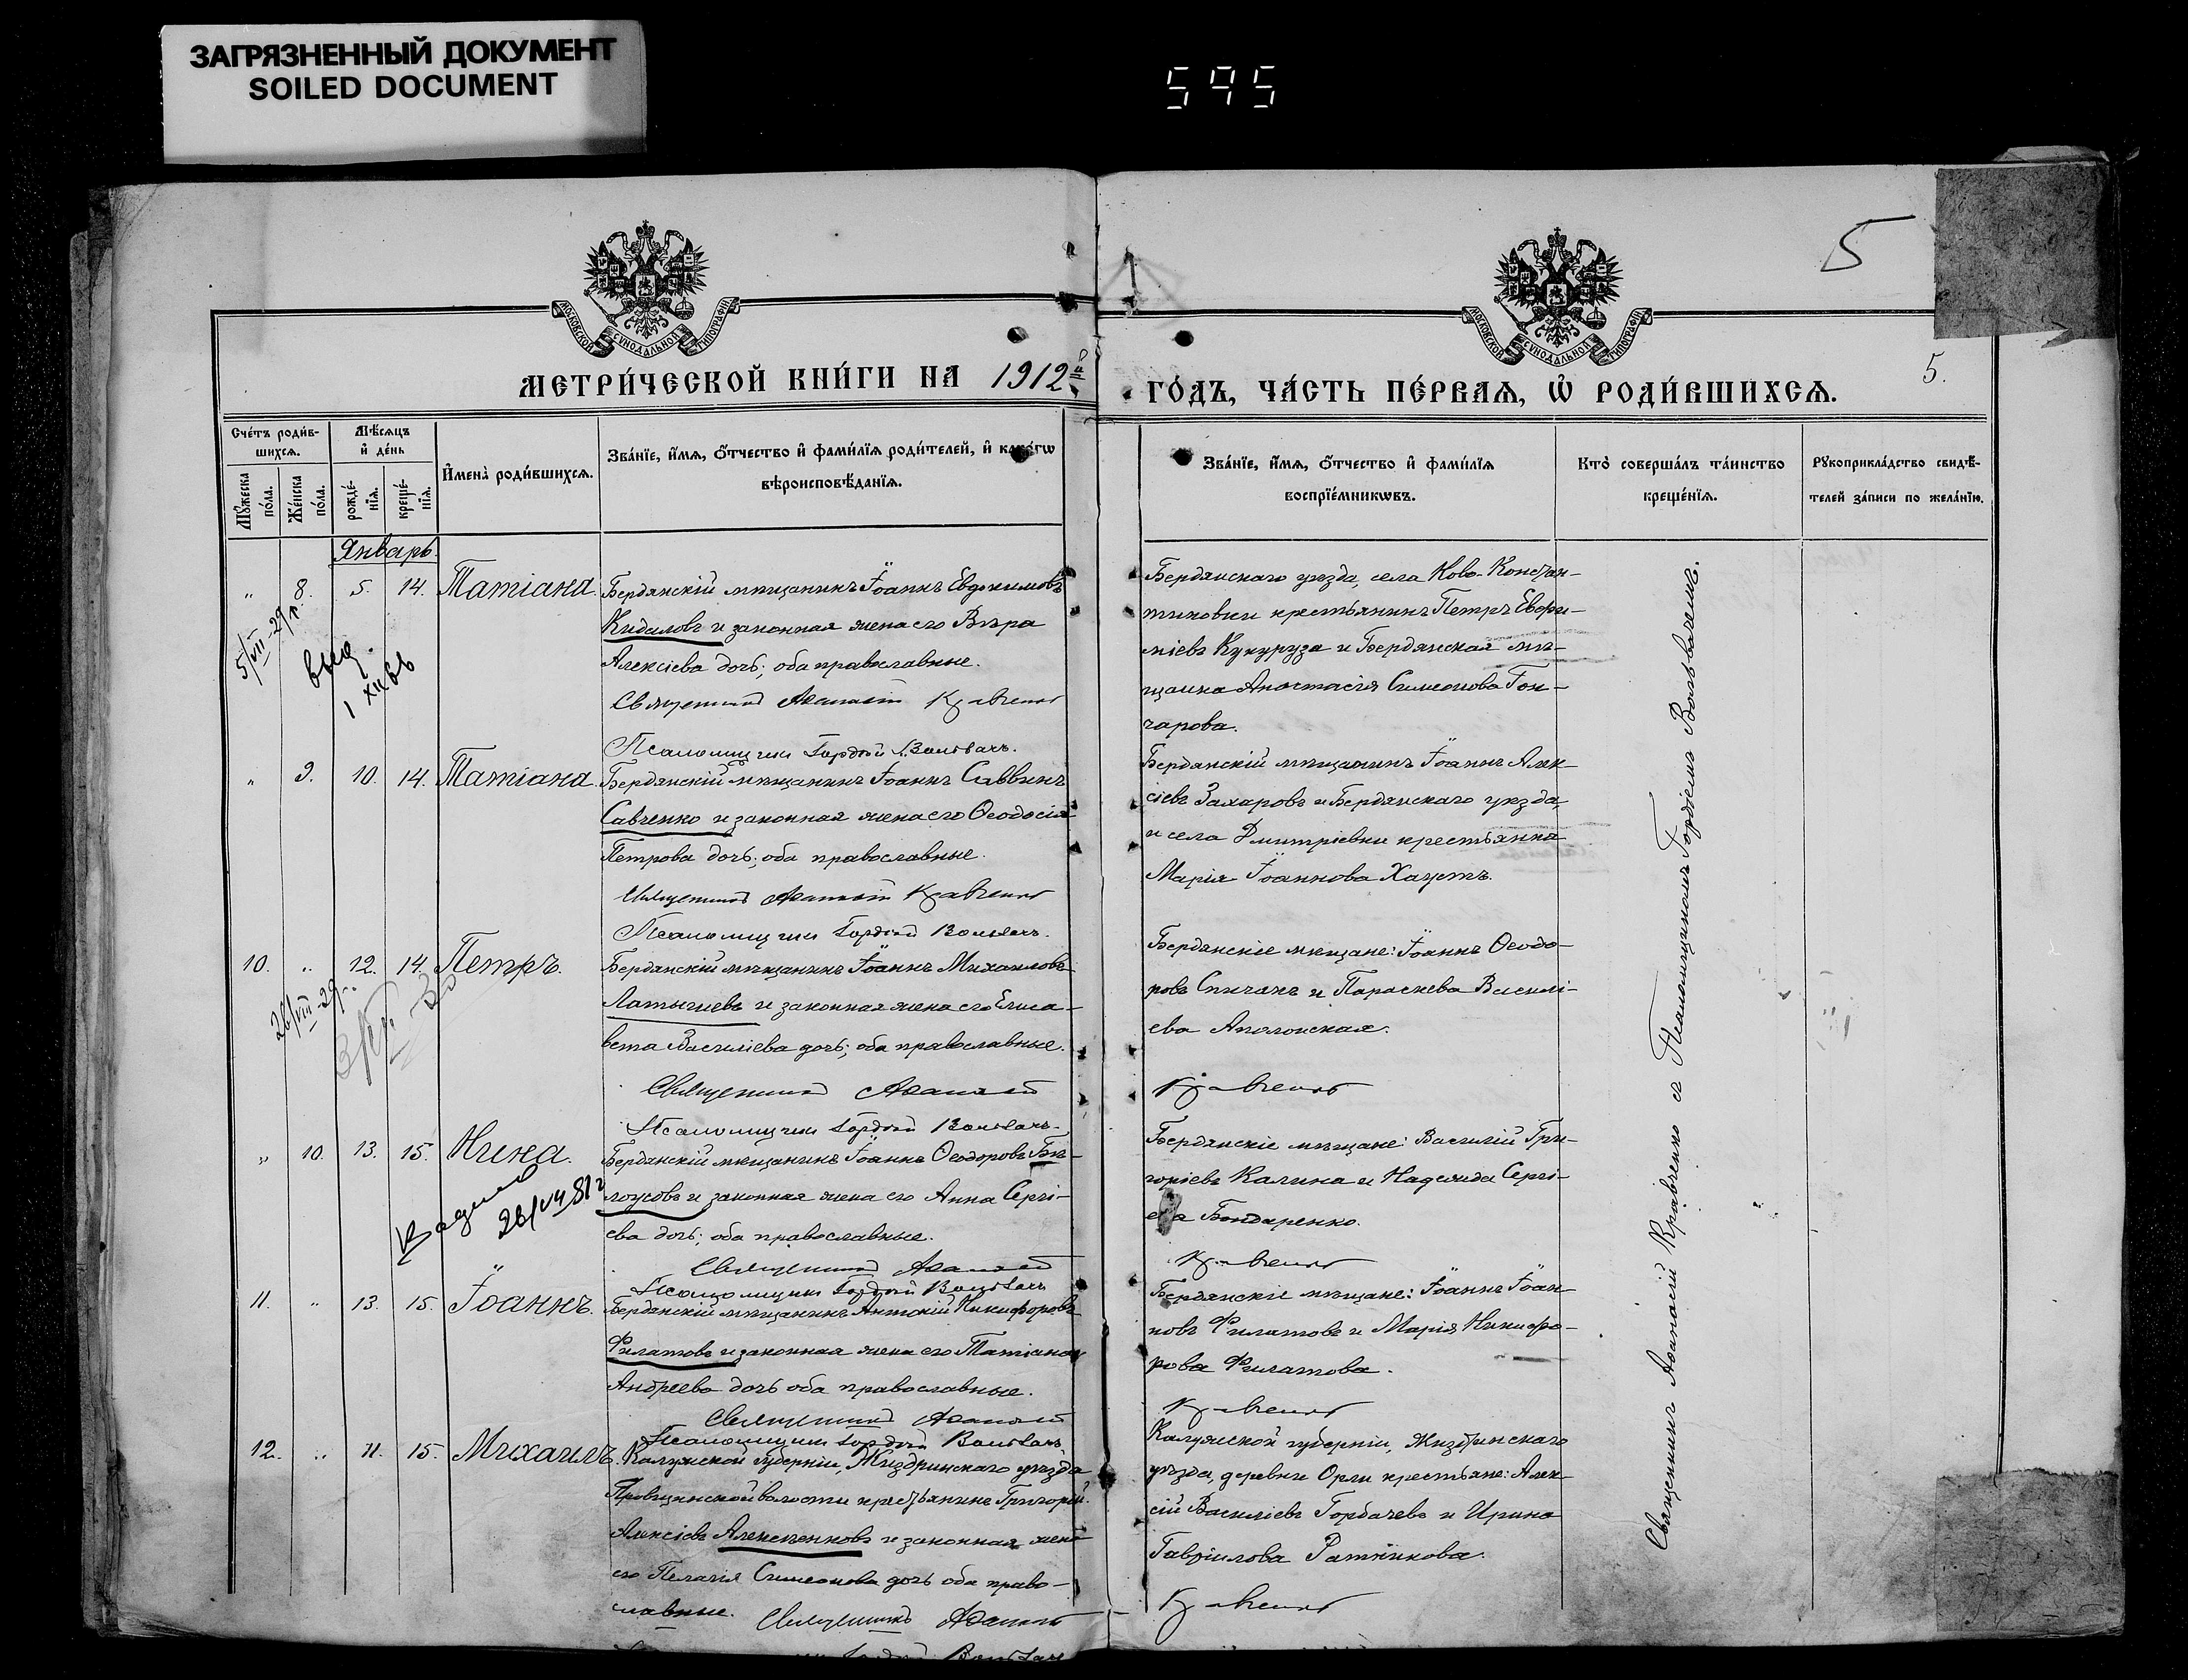 ЗАГРЯЗНЕННЫЙ ДОКУМЕНТ
SOILED DOCUMENT
595
5
МОСКОВСКОЙ СѴНОДАЛЬНОЙ ТИПОГРАФІИ
МОСКОВСКОЙ СѴНОДАЛЬНОЙ ТИПОГРАФІИ
МЕТРИ́ЧЕСКОЙ КНИ́ГИ НА 1912й
ГО́ДЪ, ЧА́СТЬ ПЕ́РВАѦ, Ѽ РОДИ́ВШИХСѦ.
5.
Сче́тъ роди́в-
шихсѧ.
Мꙋ́жеска
по́ла.
Же́нска
по́ла.
Мѣ́сѧцъ
и҆ де́нь
рожде́-
нїѧ.
креще́-
нїѧ.
И҆мена̀ роди́вшихсѧ.
Зва́нїе, и҆́мѧ, о҆́тчество и҆ фами́лїѧ роди́телей, и҆ како́гѡ
вѣроисповѣ́данїѧ.
Зва́нїе, и҆́мѧ, о҆́тчество и҆ фами́лїѧ
воспрїе́мникѡвъ.
Кто̀ соверша́лъ та́инство
креще́нїѧ.
Рꙋкоприкла́дство свидѣ́-
телей за́писи по жела́нїю.
Январь.
" 8. 5. 14. Татіана.
Бердянскій мѣщанинъ Іоаннъ Евдокимовъ
Кидаловъ и законная жена его Вѣра
Алексіева дочь; оба православные.
Священникъ Аѳанасій Кравченко
Псаломщикъ Гордій Волывачъ.
5/VII-29г.
выд.
1 XII 66
Бердянскаго уѣзда, села Ново-Констан-
тиновки крестьянинъ Петръ Евфи-
міевъ Кукуруза и Бердянская мѣ-
щанка Анастасія Симеонова Гон-
чарова.
" 9. 10. 14. Татіана.
Бердянскій мѣщанинъ Іоаннъ Саввинъ
Савченко и законная жена его Ѳеодосія
Петрова дочь; оба православные.
Священникъ Аѳанасій Кравченко
Псаломщикъ Гордій Волывачъ.
Бердянскій мѣщанинъ Іоаннъ Алек-
сіевъ Захаровъ и Бердянскаго уѣзда,
и села Дмитріевки крестьянка
Марія Іоаннова Хацетъ.
10. " 12. 14. Петръ.
Бердянскій мѣщанинъ Іоаннъ Михаиловъ
Латышевъ и законная жена его Елиса-
вета Василіева дочь; оба православные.
Священникъ Аѳанасій Кравченко
Псаломщикъ Гордій Волывачъ.
26/VIII-29г.
Бердянскіе мѣщане: Іоаннъ Ѳеодо-
ровъ Спичакъ и Параскева Василі-
ева Аполонская.
" 10. 13. 15. Нина.
Бердянскій мѣщанинъ Іоаннъ Ѳеодоровъ Бѣ-
лоусовъ и законная жена его Анна Сергі-
ева дочь; оба православные.
Священникъ Аѳанасій Кравченко
Псаломщикъ Гордій Волывачъ
Бердянскіе мѣщане: Василій Гри-
горіевъ Калина и Надежда Сергі-
ева Бондаренко.
11. " 13. 15. Іоаннъ.
Бердянскій мѣщанинъ Антоній Никифоровъ
Филатовъ и законная жена его Татіана
Андреева дочь оба православные.
Священникъ Аѳанасій Кравченко
Псаломщикъ Гордій Волывачъ
Бердянскіе мѣщане: Іоаннъ Іоан-
новъ Филатовъ и Марія Никифо-
рова Филатова.
12. " 11. 15. Михаилъ.
Калужской губерніи, Жиздринскаго уѣзда
волости крестьянинъ Григорій
Алексіевъ Алексѣенковъ и законная жена
его Пелагія Симеонова дочь оба право-
славные. Священникъ Аѳанасій Кравченко
Гордій Волывачъ
Калужской губерніи, Жиздринскаго
уѣзда, деревни Орли крестьяне: Алек-
сій Василіевъ Горбачевъ и Ирина
Гавріилова Ратникова.
Священникъ Аѳанасій Кравченко съ Псаломщикомъ Гордіемъ Волывачемъ.